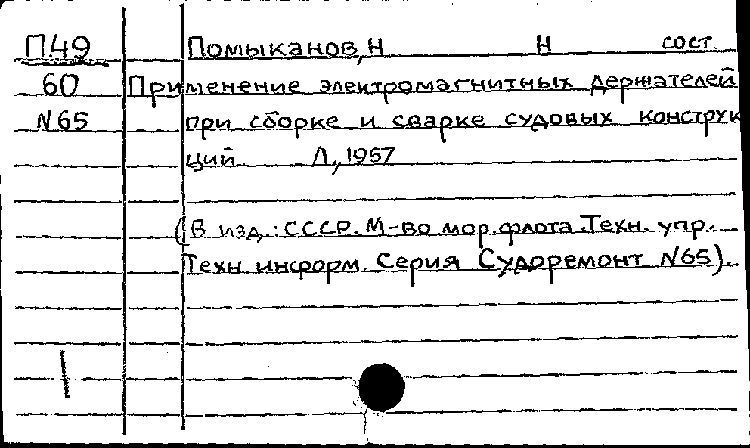 П49 Помыканов, Н Н сост
60 Применение электромагнитных держателей
N65 при сборке и сварке судовых конструк
ций Л., 1957
(В изд.: СССР. М-во мор. флота. Техн. упр.
Техн. информ. Серия Судоремонт N65).